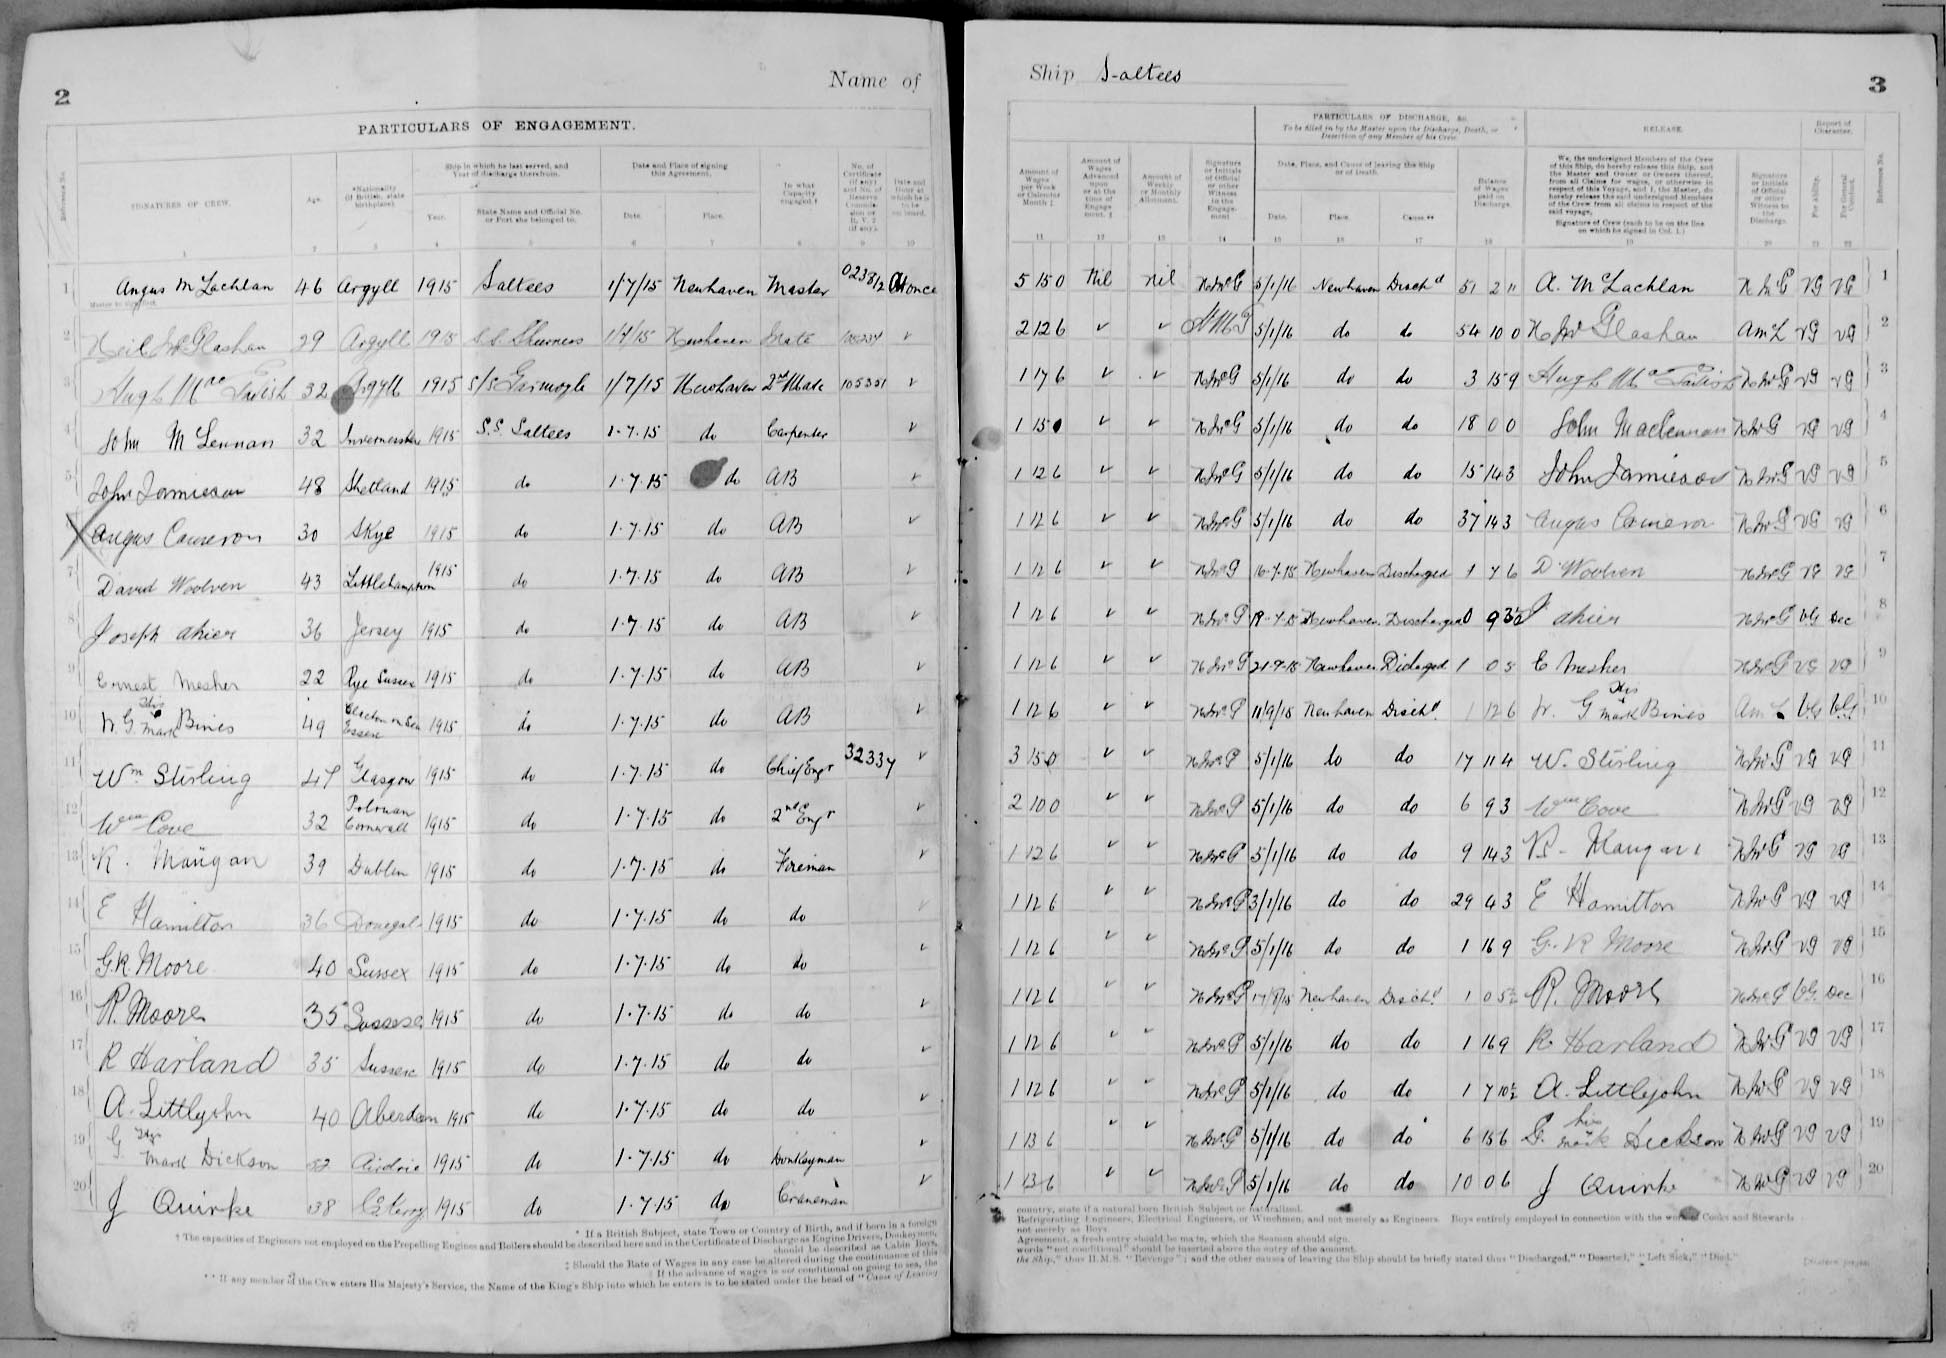 2
Name of
PARTICULARS OF ENGAGEMENT.
Reference No.
SIGNATURES OF CREW.
Age.
*Nationality (if British, state birthplace).
Ship in which he last served, and Year of discharge therefrom.
Year.
State Name and Official No. or Port she belonged to.
Date and Place of signing this Agreement.
Date.
Place.
In what Capacity engaged.†
No. of Certificate (if any) and No. of Reserve Commission or R.V. 2 (if any).
Date and Hour at which he is to be on board.
1 2 3 4 5 6 7 8 9 10
1 Angus McLachlan 46 Argyll 1915 Saltees 1/7/15 Newhaven Master At once
Master to sign first.
2 Neil McGlashan 29 Argyll 1915 S.S. 1/7/15 Newhaven Mate ✓
3 Hugh Mac Tavish 32 Argyll 1915 S/S 1/7/15 Newhaven 2nd Mate 105351 ✓
4 John McLennan 32 1915 S.S. Saltees 1.7.15 do Carpenter ✓
5 John Jamieson 48 Shetland 1915 do 1.7.15 do AB ✓
6 Angus Cameron 30 Skye 1915 do 1.7.15 do AB ✓
7 David Woolven 43 Littlehampton 1915 do 1.7.15 do AB ✓
8 Joseph Ahier 36 Jersey 1915 do 1.7.15 do AB ✓
9 Ernest Mesher 22 Rye Sussex 1915 do 1.7.15 do AB ✓
10 W. G. His Mark Bines 49 Clacton on Sea Essex 1915 do 1.7.15 do AB ✓
11 Wm Stirling 47 Glasgow 1915 do 1.7.15 do Chief Engr 32337 ✓
12 Wm Cove 32 Polruan Cornwall 1915 do 1.7.15 do 2nd Engr ✓
13 R. Mangan 39 Dublin 1915 do 1.7.15 do Fireman ✓
14 E Hamilton 36 Donegal 1915 do 1.7.15 do do ✓
15 G.R. Moore 40 Sussex 1915 do 1.7.15 do do ✓
16 R. Moore 35 Sussex 1915 do 1.7.15 do do ✓
17 R Harland 35 Sussex 1915 do 1.7.15 do do ✓
18 A. Littlejohn 40 Aberdeen 1915 do 1.7.15 do do ✓
19 G His Mark Dickson 52 Airdrie 1915 do 1.7.15 do Donkeyman ✓
20 J Quirke 38 Co Kerry 1915 do 1.7.15 do Craneman ✓
* If a British Subject, state Town or Country of Birth, and if born in a foreign
† The capacities of Engineers not employed on the Propelling Engines and Boilers should be described here and in the Certificate of Discharge as Engine Drivers, Donkeymen,
should be described as Cabin Boys,
‡ Should the Rate of Wages in any case be altered during the continuance of this
If the advance of wages is not conditional on going to sea, the
** If any member of the Crew enters His Majesty's Service, the Name of the King's Ship into which he enters is to be stated under the head of "Cause of Leaving
Ship Saltees
3
Amount of Wages per Week or Calendar Month ‡
Amount of Wages Advanced upon or at the time of Engagement. §
Amount of Weekly or Monthly Allotment.
Signature or Initials of Official or other Witness to the Engagement
PARTICULARS OF DISCHARGE, &c.
To be filled in by the Master upon the Discharge, Death, or Desertion of any Member of his Crew.
Date, Place, and Cause of leaving the Ship or of Death.
Date.
Place.
Cause.**
Balance of Wages paid on Discharge.
RELEASE.
We, the undersigned Members of the Crew of this Ship, do hereby release this Ship, and the Master and Owner or Owners thereof, from all Claims for wages, or otherwise in respect of this Voyage, and I, the Master, do hereby release the said undersigned Members of the Crew from all claims in respect of the said voyage.
Signature of Crew (each to be on the line on which he signed in Col. 1.)
Signature or Initials of Official or other Witness to the Discharge.
Report of Character.
For Ability.
For General Conduct.
Reference No.
11 12 13 14 15 16 17 18 19 20 21 22
5 15 0 Nil nil N McG 5/1/16 Newhaven Dischd 51 2 11 A. McLachlan N McG VG VG 1
2 12 6 ✓ ✓ 5/1/16 do do 54 10 0 N McGlashan AmL VG VG 2
1 17 6 ✓ ✓ N McG 5/1/16 do do 3 15 9 Hugh Mac Tavish N McG VG VG 3
1 15 0 ✓ ✓ N McG 5/1/16 do do 18 0 0 John MacLennan N McG VG VG 4
1 12 6 ✓ ✓ N McG 5/1/16 do do 15 14 3 John Jamieson N McG VG VG 5
1 12 6 ✓ ✓ N McG 5/1/16 do do 37 14 3 Angus Cameron N McG VG VG 6
1 12 6 ✓ ✓ N McG 16-7-15 Newhaven Discharged 1 7 6 D Woolven N McG VG VG 7
1 12 6 ✓ ✓ N McG Newhaven Discharged 0 9 3½ J Ahier N McG VG Dec 8
1 12 6 ✓ ✓ N McG Newhaven Discharged 1 0 5 E Mesher N McG VG VG 9
1 12 6 ✓ ✓ N McG 11/9/15 Newhaven Dischd. 1 12 6 W. G His Mark Bines AmL VG VG 10
3 15 0 ✓ ✓ N McG 5/1/16 do do 17 11 4 W. Stirling N McG VG VG 11
2 10 0 ✓ ✓ N McG 5/1/16 do do 6 9 3 Wm Cove N McG VG VG 12
1 12 6 ✓ ✓ N McG 5/1/16 do do 9 14 3 R. Mangan N McG VG VG 13
1 12 6 ✓ ✓ N McG 3/1/16 do do 29 4 3 E Hamilton N McG VG VG 14
1 12 6 ✓ ✓ N McG 5/1/16 do do 1 16 9 G. R Moore N McG VG VG 15
1 12 6 ✓ ✓ N McG Newhaven Dischd 1 0 5½ R. Moore N McG VG. Dec 16
1 12 6 ✓ ✓ N McG 5/1/16 do do 1 16 9 R Harland N McG VG VG 17
1 12 6 ✓ ✓ N McG 5/1/16 do do 1 7 10½ A. Littlejohn N McG VG VG 18
1 13 6 ✓ ✓ N McG 5/1/16 do do 6 15 6 G. his mark Dickson N McG VG VG 19
1 13 6 ✓ ✓ N McG 5/1/16 do do 10 0 6 J Quirke N McG VG VG 20
country, state if a natural born British Subject or naturalised.
Refrigerating Engineers, Electrical Engineers, or Winchmen, and not merely as Engineers. Boys entirely employed in connection with the work of Cooks and Stewards
not merely as Boys.
Agreement, a fresh entry should be made, which the Seaman should sign.
words "not conditional" should be inserted above the entry of the amount.
the Ship," thus H.M.S. "Revenge"; and the other causes of leaving the Ship should be briefly stated thus "Discharged," "Deserted," "Left Sick," "Died."